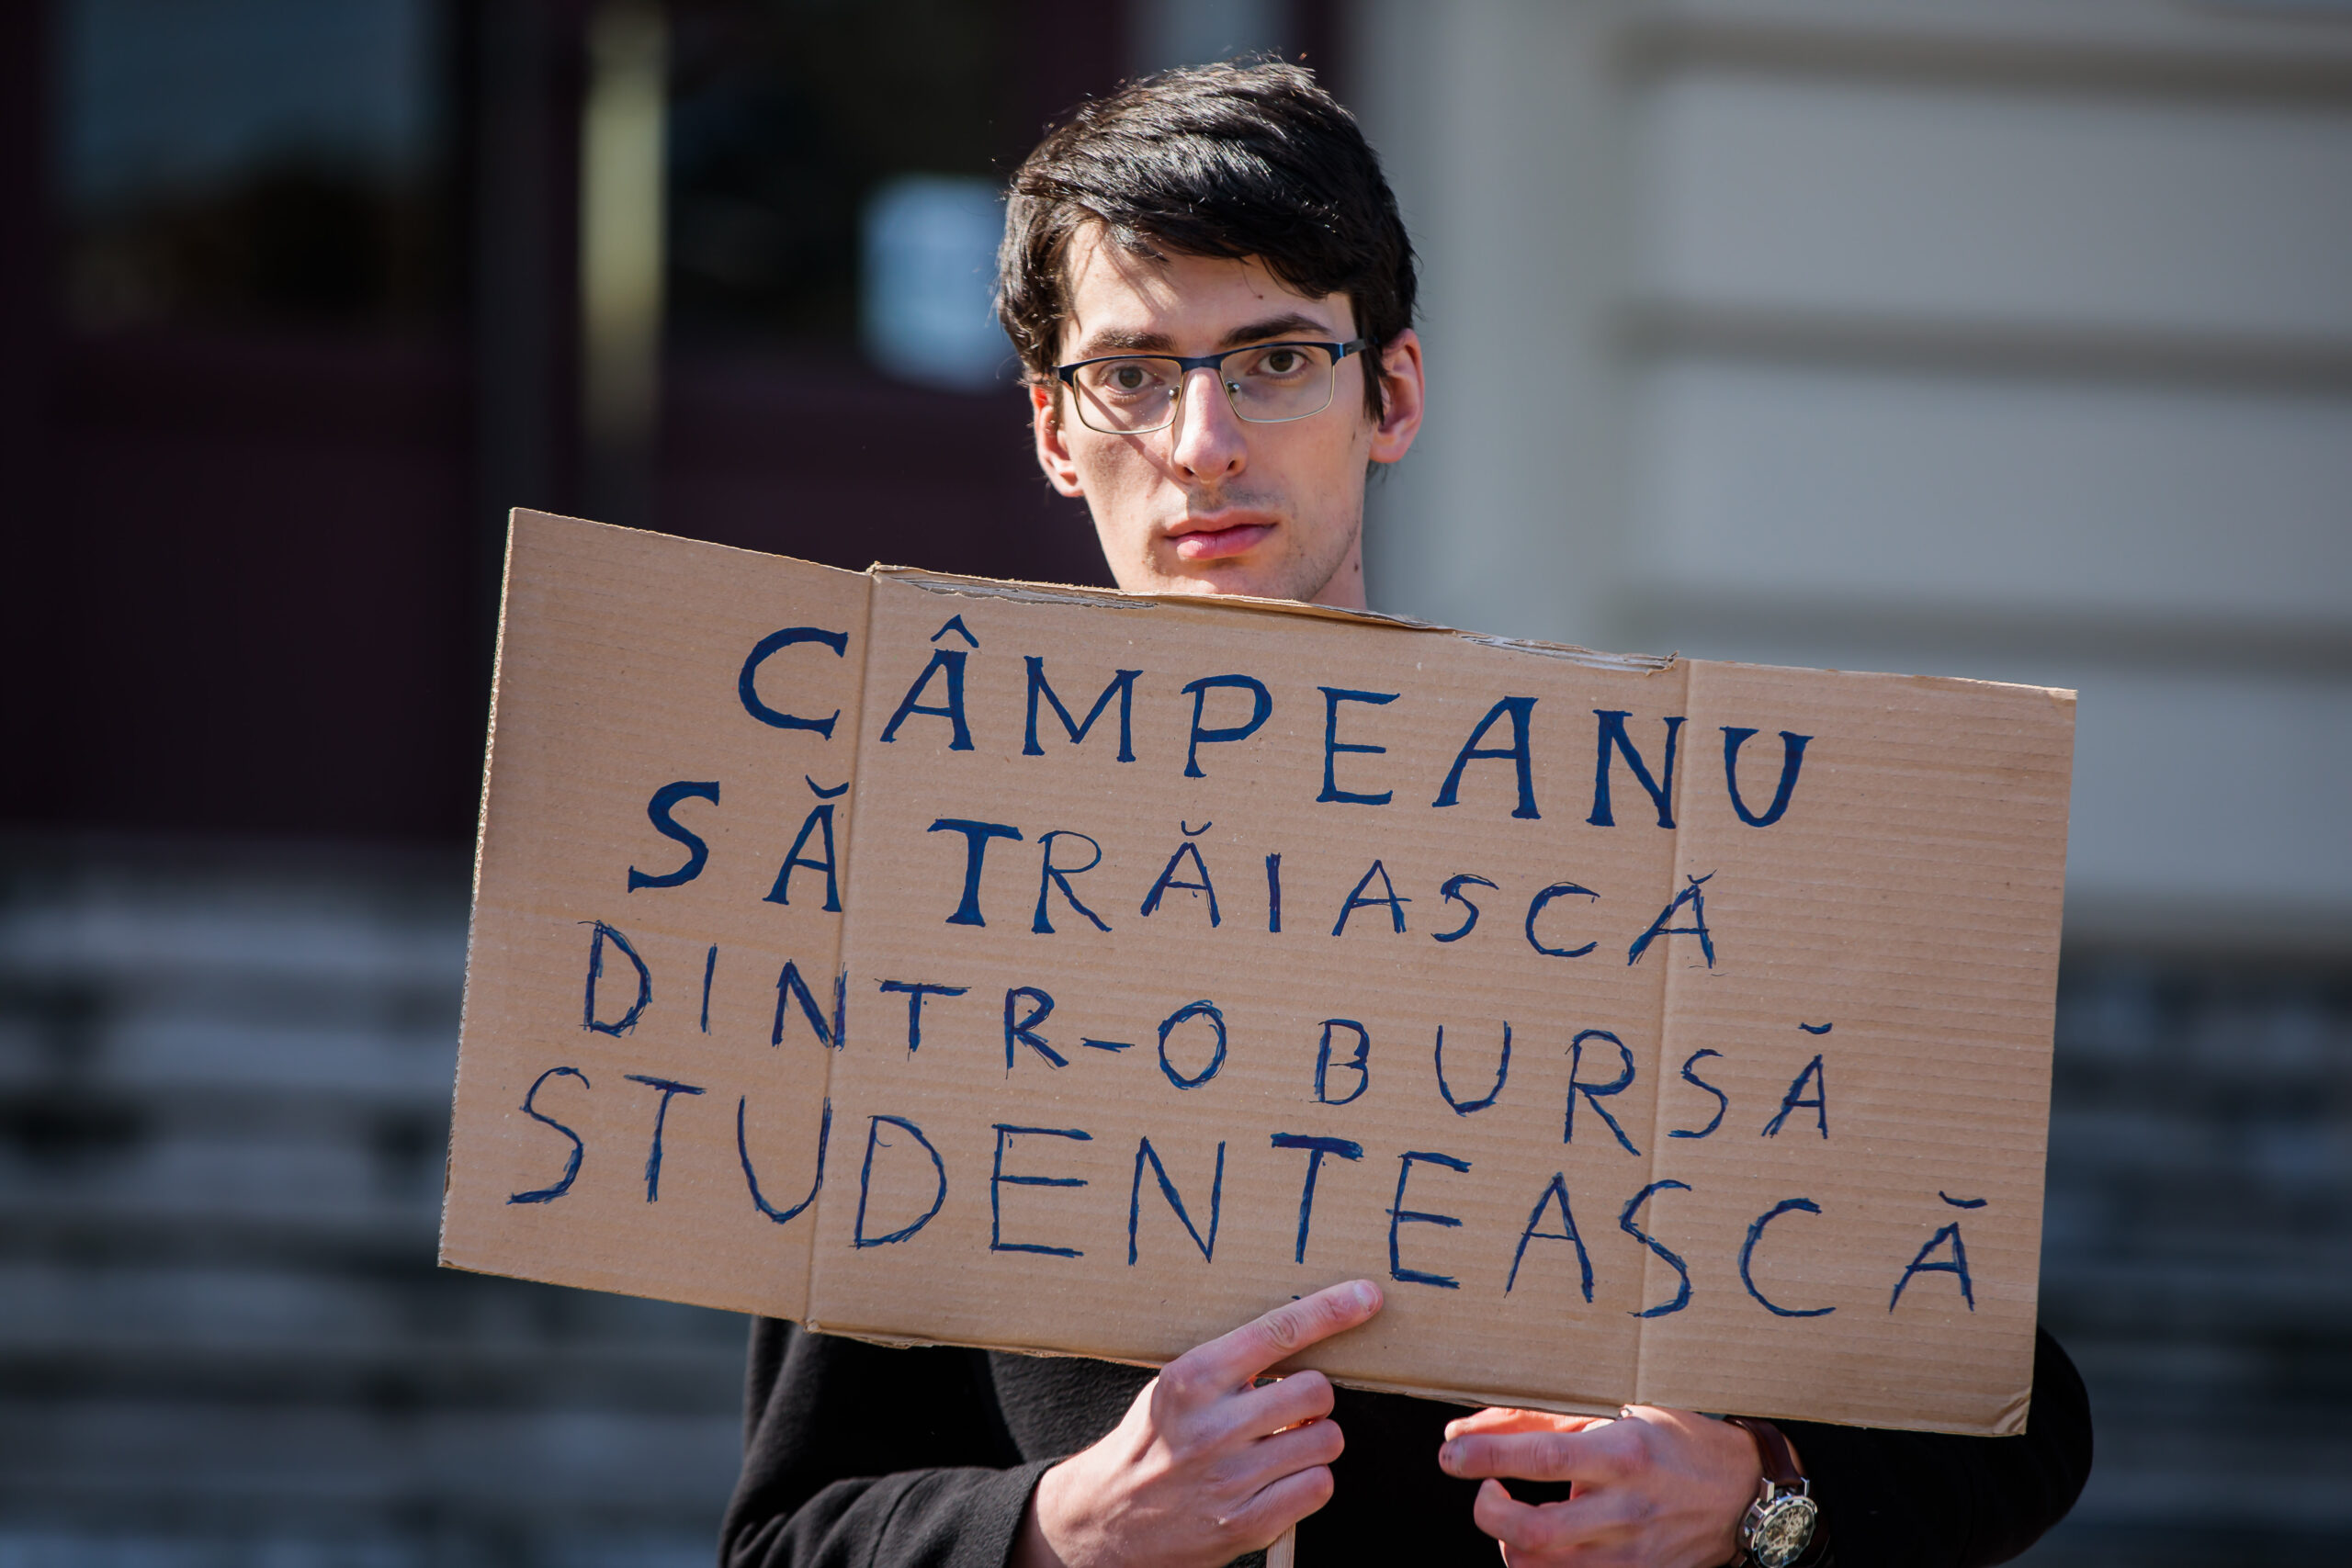 CÂMPEANU
SĂ TRĂIASCĂ
DINTR-O BURSĂ
STUDENȚEASCĂ